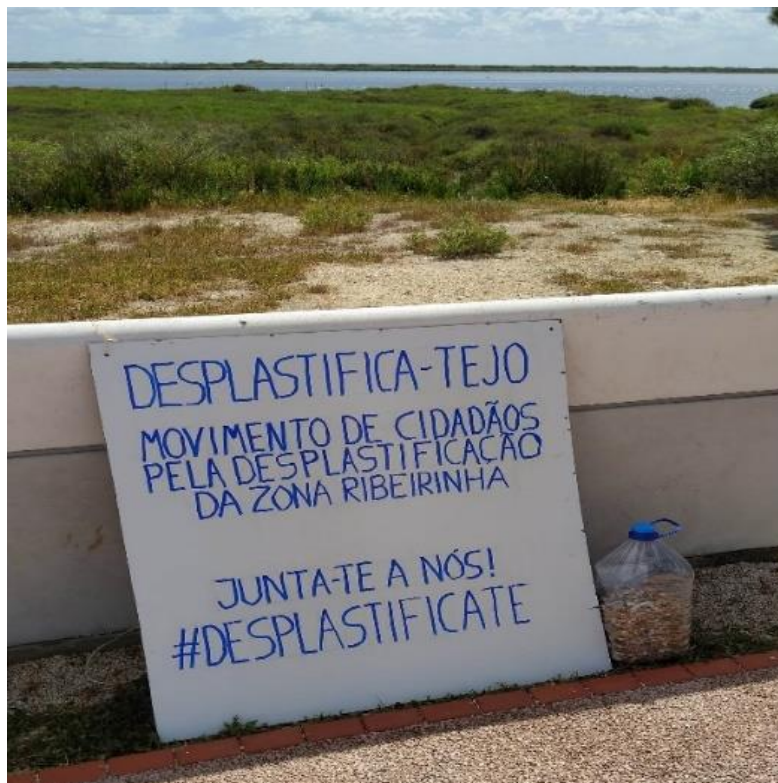 DESPLASTIFICA-TEJO
MOVIMENTO DE CIDADÃOS
PELA DESPLASTIFICAÇÃO
DA ZONA RIBEIRINHA
JUNTA-TE A NÓS!
#DESPLASTIFICATE